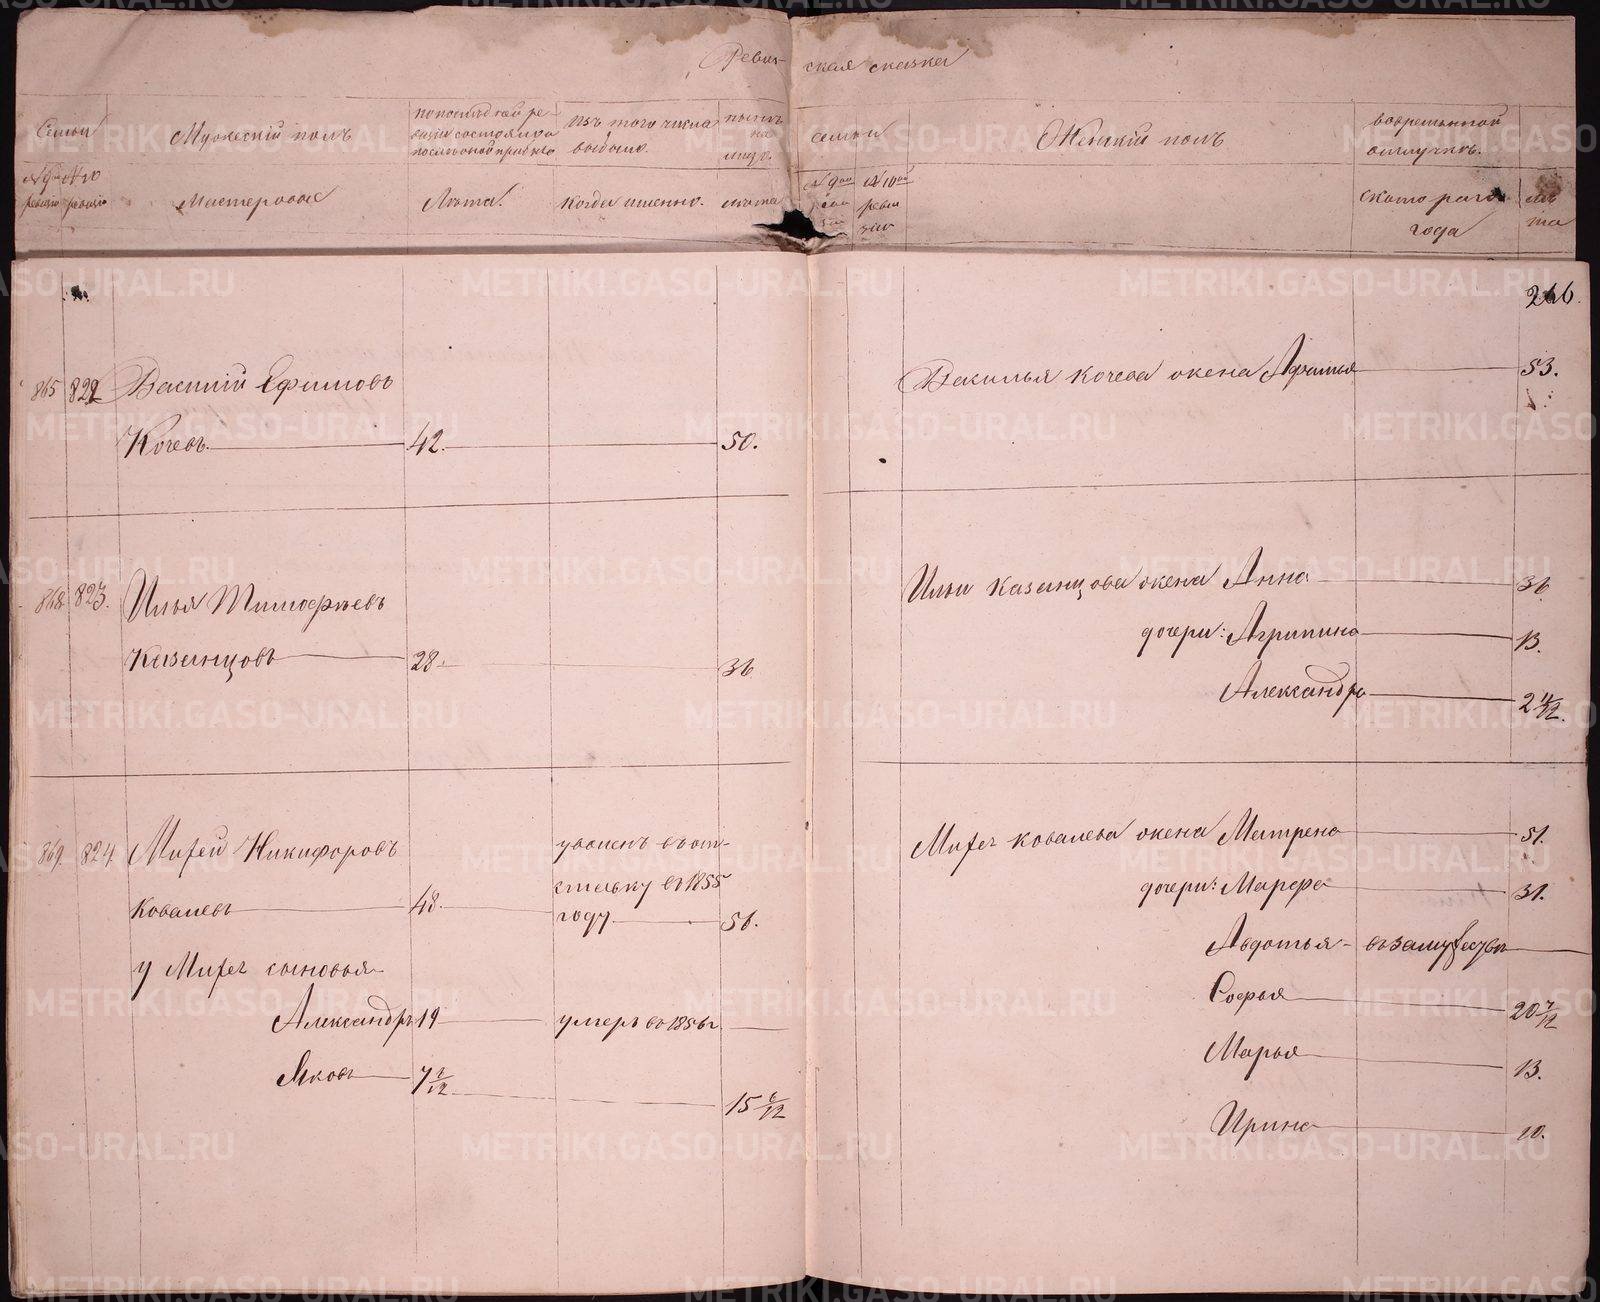 Ревизская сказка
Семьи
Мужескій полъ
по последней ре-
визіи состояло и
после оной прибыло
Изъ того числа
выбыло.
ныне
на
лицо.
семьи
Женскій полъ
во временной
отлучкѣ.
№ 9й
ревизіи
№ 10
ревизіи
Мастеровые
Лѣта.
Когда именно.
лѣта
№ 9ой
№ 10ой
реви
зіи
с котораго
года
лѣ
та
266.
865 822 Василій Ефимовъ
Кочевъ 42. 50.
Василья Кочева жена Афимья 53.
868 823. Илья Тимофѣевъ
Казанцовъ 28. 36
Ильи Казанцова жена Анна 36
дочери: Агрипина 13.
Александра 2 11/12.
869 824 Михей Никифоровъ
Ковалевъ 48.
уволенъ въ от-
ставку въ 1855
году 56.
у Михея сыновья
Александръ 19 умеръ въ 1856 г.
Яковъ 7 2/12 15 6/12
Михея Ковалева жена Матрена 51.
дочери: Марфа 31.
Авдотья - въ замужествѣ
Софья 20 7/12
Марья 13.
Ирина 10.
METRIKI.GASO-URAL.RU